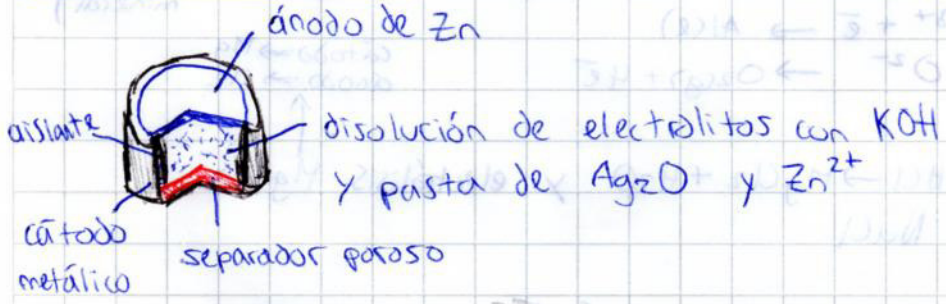 ánodo de Zn
aislante
disolución de electrolitos con KOH
y pasta de Ag2O y Zn2+
cátodo
metálico
separador poroso